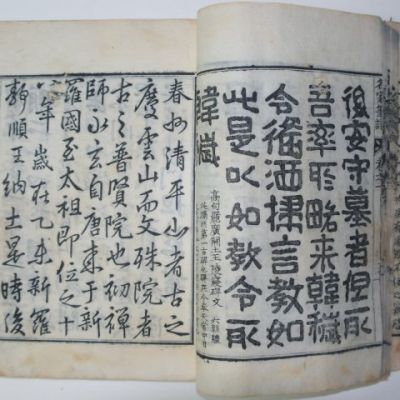 後安守墓者但取
吾率所略来韓穢
令備洒掃言教如
此是以如教令取
韓穢
高句麗廣開土王陵碑文 六朝體
春州清平山者古之
慶雲山而文殊院者
古之普賢院也初禪
師永玄自唐来于新
羅國至太祖即位之十
八年歲在乙未新羅
敬順王納土是時後